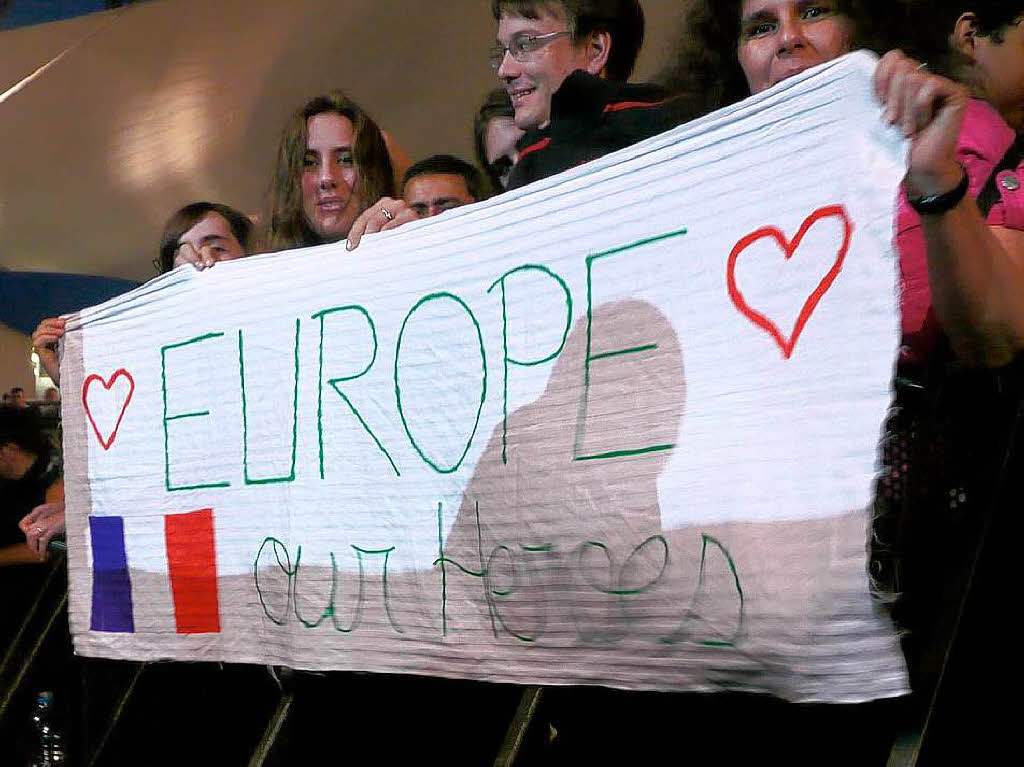 EUROPE
our Heroes